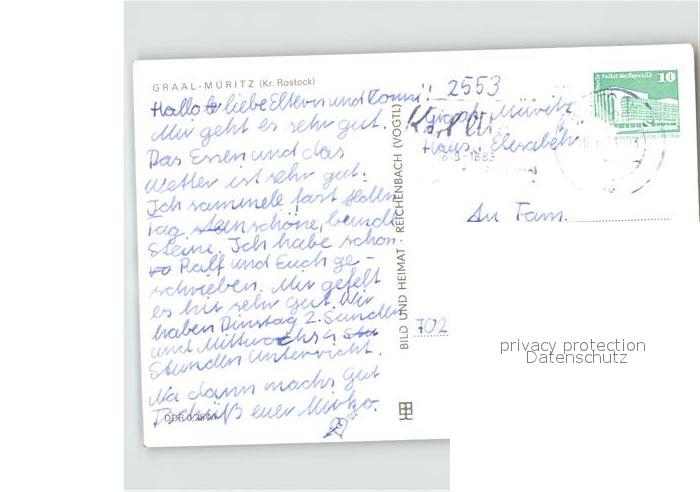 GRAAL-MÜRITZ (Kr. Rostock)
Hallo liebe Eltern und Conni!
Mir geht es sehr gut.
Das Essen und das
Wetter ist sehr gut.
Ich sammele fast
Tag schöne, bunde
Steine. Ich habe schon
Ralf und Euch ge-
schrieben. Mir gefelt
es hir sehr gut. Wir
haben Dinstag 2. Sunden
und Mittwochs 4
Stunden Unterricht.
Na dann machs gut
Tschüß euer Mirko.
BILD UND HEIMAT · REICHENBACH (VOGTL)
2553
Graal-Müritz
Haus Elisabeth
Palast der Republik 10
An Fam.
702
privacy protection
Datenschutz